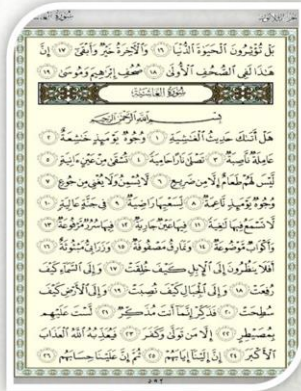 سُورَةُ الغَاشِيَةِ
بَلْ تُؤْثِرُونَ الْحَيَوٰةَ الدُّنْيَا ١٦ وَالْآخِرَةُ خَيْرٌ وَأَبْقَىٰٓ ١٧ إِنَّ
هَٰذَا لَفِي الصُّحُفِ الْأُولَىٰ ١٨ صُحُفِ إِبْرَاهِيمَ وَمُوسَىٰ ١٩
سُورَةُ الغَاشِيَةِ
بِسْمِ اللَّهِ الرَّحْمَٰنِ الرَّحِيمِ
هَلْ أَتَىٰكَ حَدِيثُ الْغَٰشِيَةِ ١ وُجُوهٌ يَوْمَئِذٍ خَٰشِعَةٌ ٢
عَامِلَةٌ نَّاصِبَةٌ ٣ تَصْلَىٰ نَارًا حَامِيَةً ٤ تُسْقَىٰ مِنْ عَيْنٍ ءَانِيَةٍ ٥
لَّيْسَ لَهُمْ طَعَامٌ إِلَّا مِن ضَرِيعٍ ٦ لَّا يُسْمِنُ وَلَا يُغْنِي مِن جُوعٍ ٧
وُجُوهٌ يَوْمَئِذٍ نَّاعِمَةٌ ٨ لِّسَعْيِهَا رَاضِيَةٌ ٩ فِي جَنَّةٍ عَالِيَةٍ ١٠
لَّا تَسْمَعُ فِيهَا لَٰغِيَةً ١١ فِيهَا عَيْنٌ جَارِيَةٌ ١٢ فِيهَا سُرُرٌ مَّرْفُوعَةٌ ١٣
وَأَكْوَابٌ مَّوْضُوعَةٌ ١٤ وَنَمَارِقُ مَصْفُوفَةٌ ١٥ وَزَرَابِيُّ مَبْثُوثَةٌ ١٦
أَفَلَا يَنظُرُونَ إِلَى الْإِبِلِ كَيْفَ خُلِقَتْ ١٧ وَإِلَى السَّمَاءِ كَيْفَ
رُفِعَتْ ١٨ وَإِلَى الْجِبَالِ كَيْفَ نُصِبَتْ ١٩ وَإِلَى الْأَرْضِ كَيْفَ
سُطِحَتْ ٢٠ فَذَكِّرْ إِنَّمَا أَنتَ مُذَكِّرٌ ٢١ لَّسْتَ عَلَيْهِم
بِمُصَيْطِرٍ ٢٢ إِلَّا مَن تَوَلَّىٰ وَكَفَرَ ٢٣ فَيُعَذِّبُهُ اللَّهُ الْعَذَابَ
الْأَكْبَرَ ٢٤ إِنَّ إِلَيْنَا إِيَابَهُمْ ٢٥ ثُمَّ إِنَّ عَلَيْنَا حِسَابَهُم ٢٦
٥٩٢